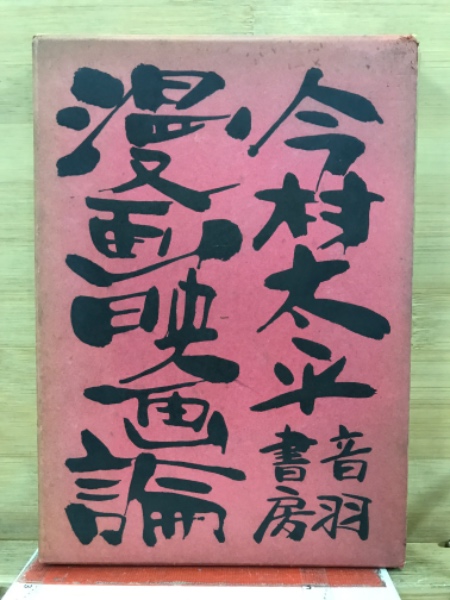 今村太平
漫画映画論
音羽
書房